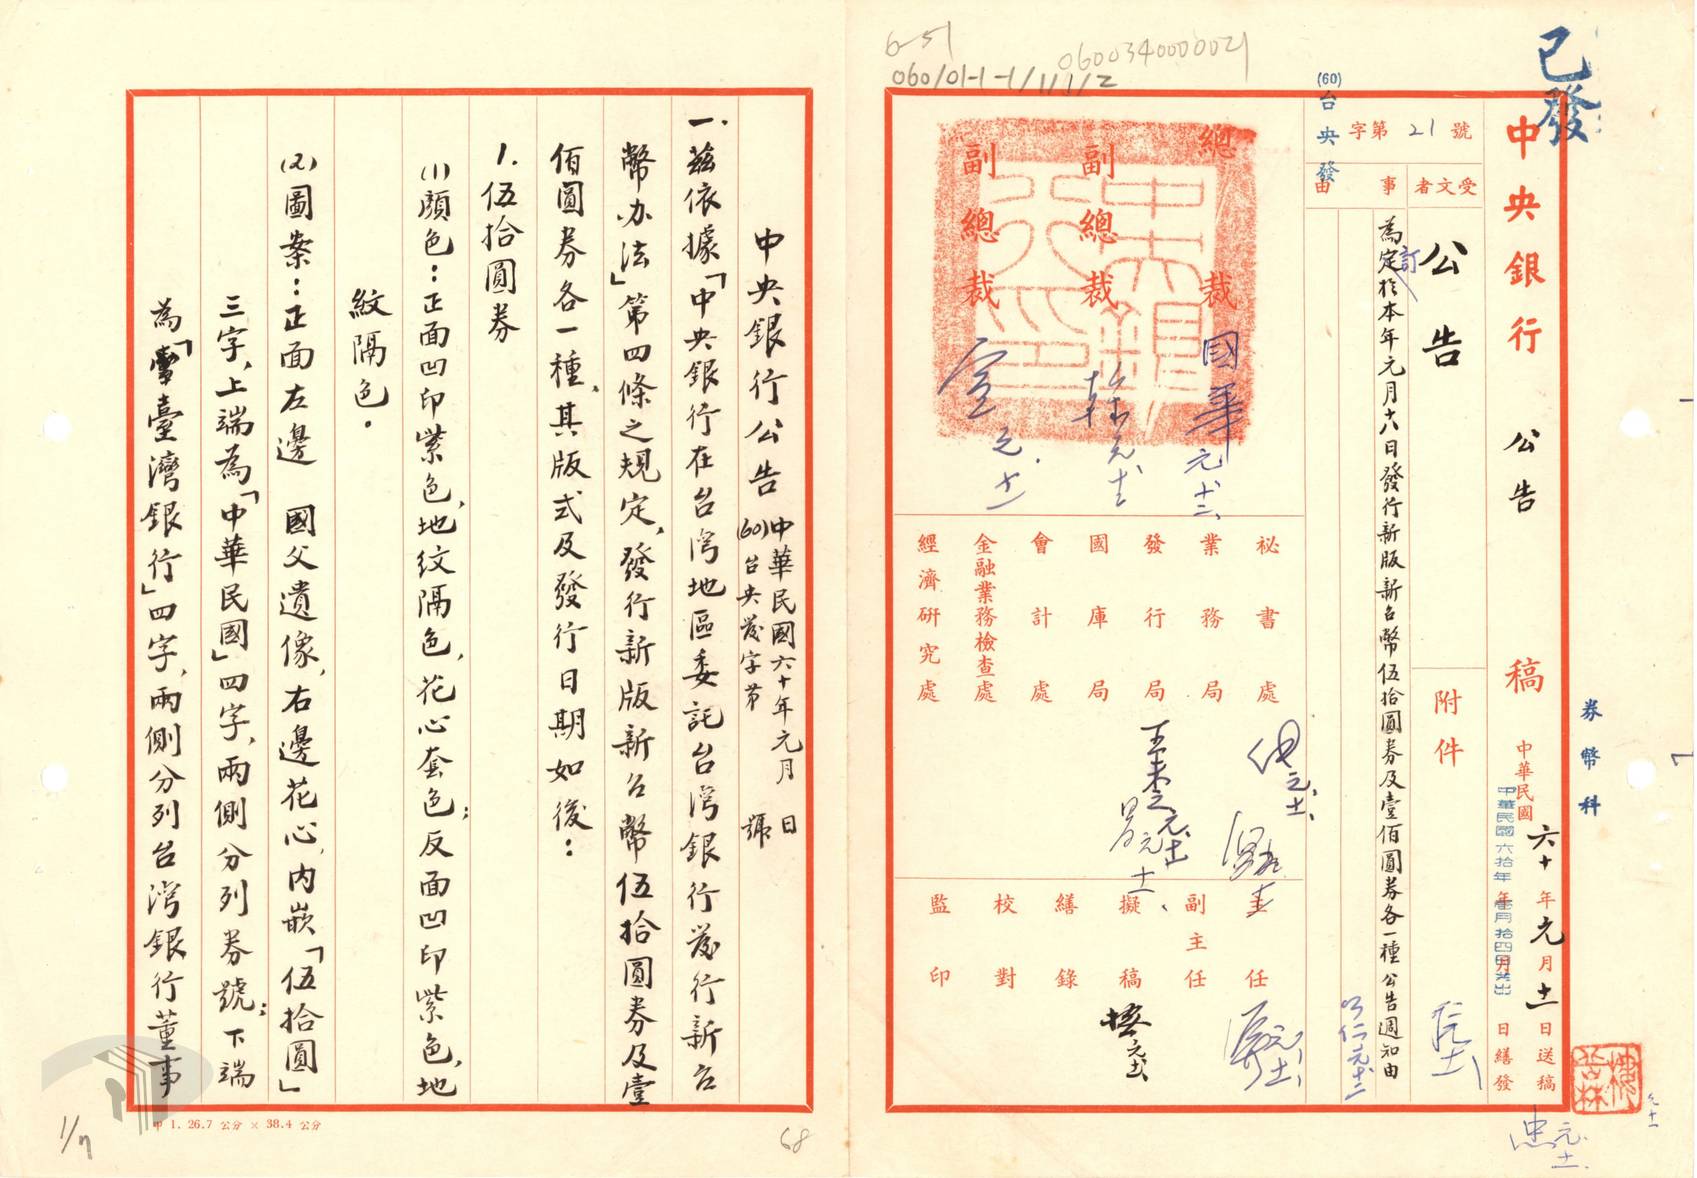 已發
6-51
0600340000021
060/01-1-1/1/1/2
中央銀行 公告 稿
中華民國六十年元月十一日送稿
年 月 日繕發
券幣科
(60)台央發字第21號
受文者
公告
附件
事由
為定訂於本年元月十八日發行新版新台幣伍拾圓券及壹佰圓券各一種公告週知由
總裁
副總裁
副總裁
國華
元
秘書處
業務局
發行局
國庫局
會計處
金融業務檢查處
經濟研究處
主任
副主任
擬稿
繕錄
校對
監印
中央銀行公告 中華民國六十年元月 日
(60)台央發字第 號
一、茲依據「中央銀行在台灣地區委託台灣銀行發行新台
幣办法」第四條之規定,發行新版新台幣伍拾圓券及壹
佰圓券各一種,其版式及發行日期如後:
1.伍拾圓券
(1)顏色:正面凹印紫色,地紋隔色,花心套色;反面凹印紫色,地
紋隔色。
(2)圖案:正面左邊 國父遺像,右邊花心,內嵌「伍拾圓」
三字,上端為「中華民國」四字,兩側分列券號;下端
為「臺灣銀行」四字,兩側分列台灣銀行董事
甲 1. 26.7 公分 × 38.4 公分
1/7
68